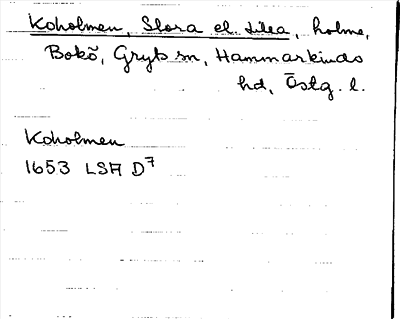 Koholmen, Stora el. Lilla, holme,
Bokö, Gryts sn, Hammarkinds
hd, Östg. l.
Koholmen
1653 LSA D7